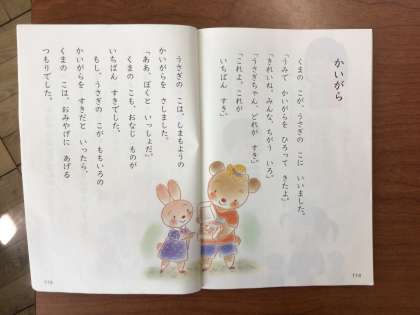 かいがら
くまの こが、うさぎの こに いいました。
「うみで かいがらを ひろって きたよ。」
「きれいね。みんな、ちがう いろ。」
「うさぎちゃん、どれが すき。」
「これよ。これが
いちばん すき。」
うさぎの こは、しまもようの
かいがらを さしました。
「ああ、ぼくと いっしょだ。」
くまの こも、おなじ ものが
いちばん すきでした。
もし、うさぎの こが ももいろの
かいがらを すきだと いったら、
くまの こは、おみやげに あげる
つもりでした。